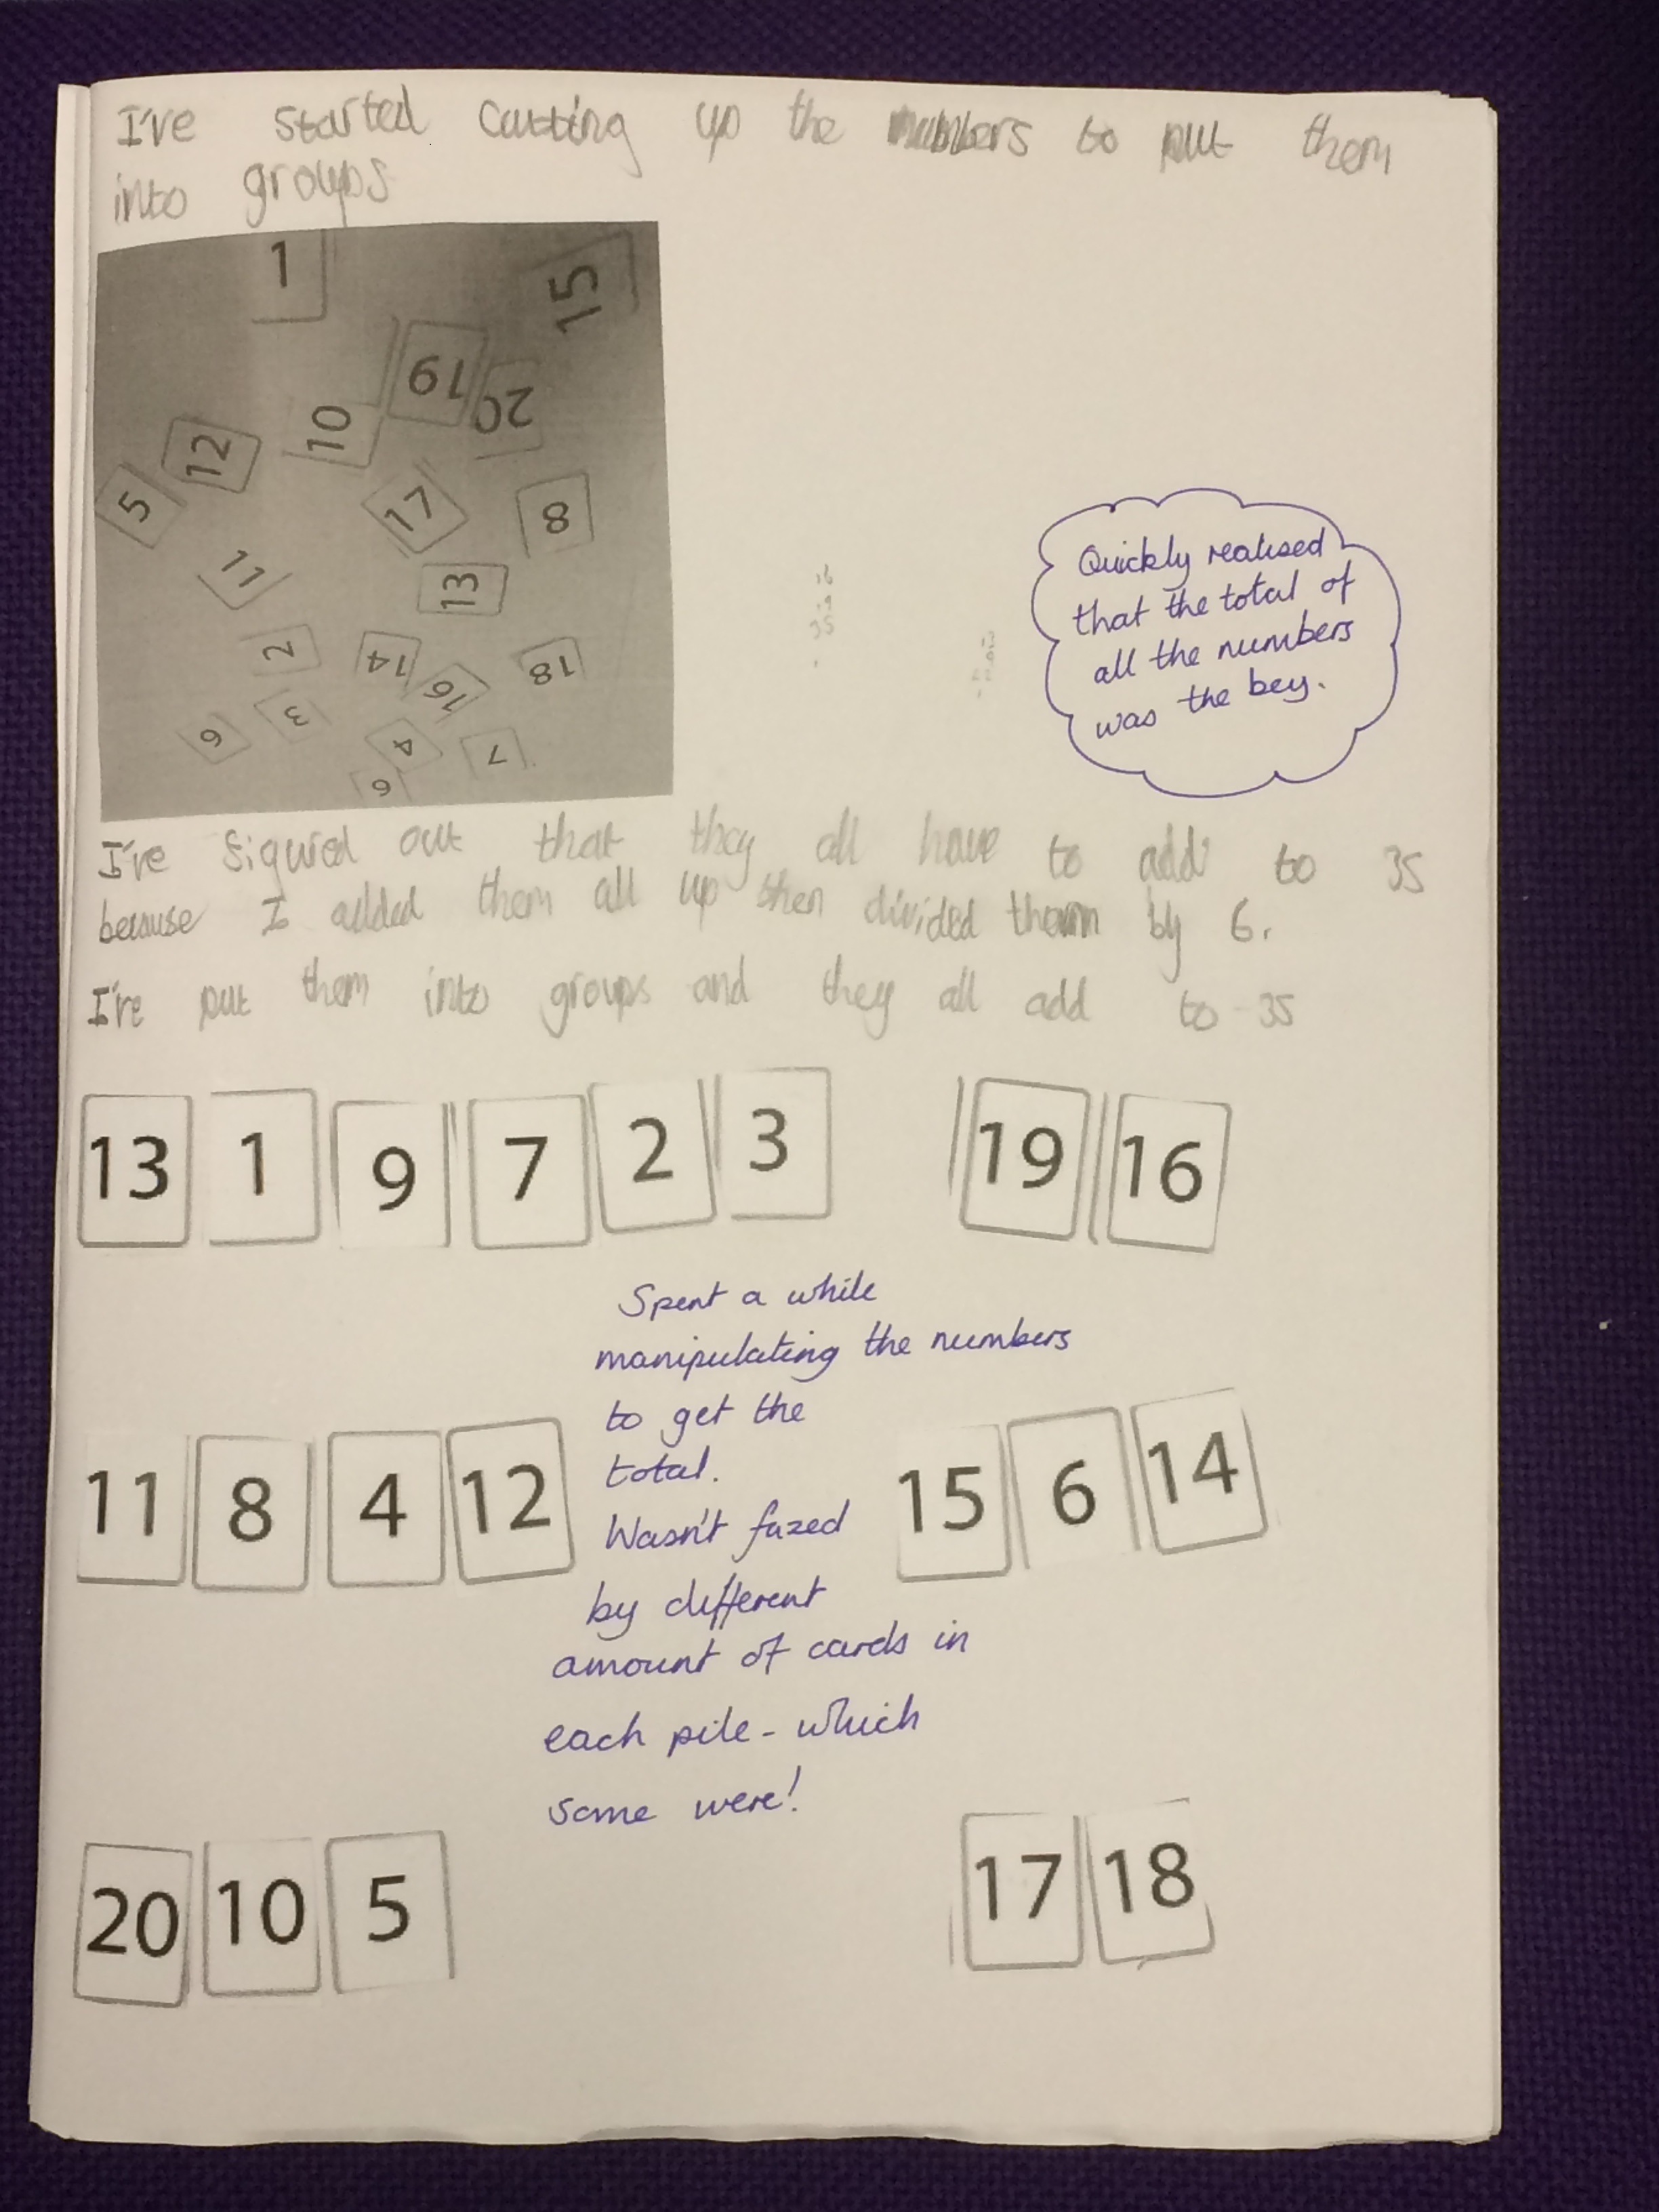 I've started cutting up the numbers to put them
into groups
1
15
19
20
10
12
5
17
8
11
13
2
14
16
18
3
6
4
7
9
Quickly realised
that the total of
all the numbers
was the key.
I've figured out that they all have to add to 35
because I added them all up then divided them by 6.
I've put them into groups and they all add to 35
13 1 9 7 2 3 19 16
Spent a while
manipulating the numbers
to get the
total.
11 8 4 12 15 6 14
Wasn't fazed
by different
amount of cards in
each pile - which
some were!
20 10 5 17 18